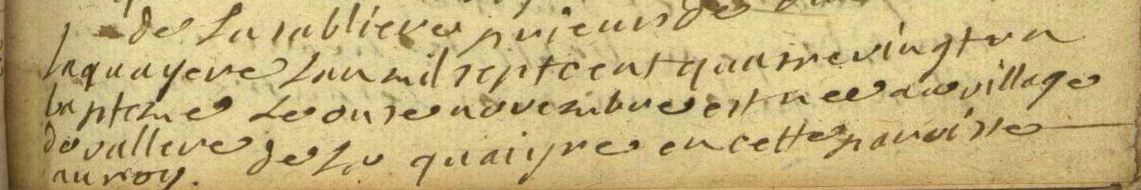 de La sabliere prieur de
laquayere Lan mil sept cent quatre vingt un
bapteme Le onse novembre est nee au village
de valleve de La quaiyre en cette paroisse
au roy.